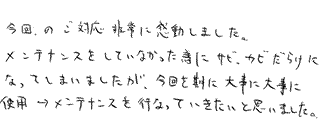 今回、のご対応非常に感動しました。
メンテナンスをしていなかった為にサビ、カビだらけに
なってしまいましたが、今回を期に大事に大事に
使用→メンテナンスを行なっていきたいと思いました。